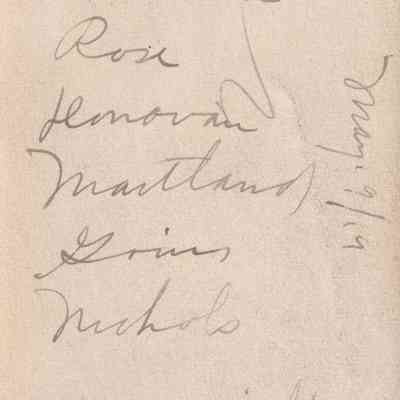 Rose
Donovan
Maitland
Goins
Nichols
May. 9/19